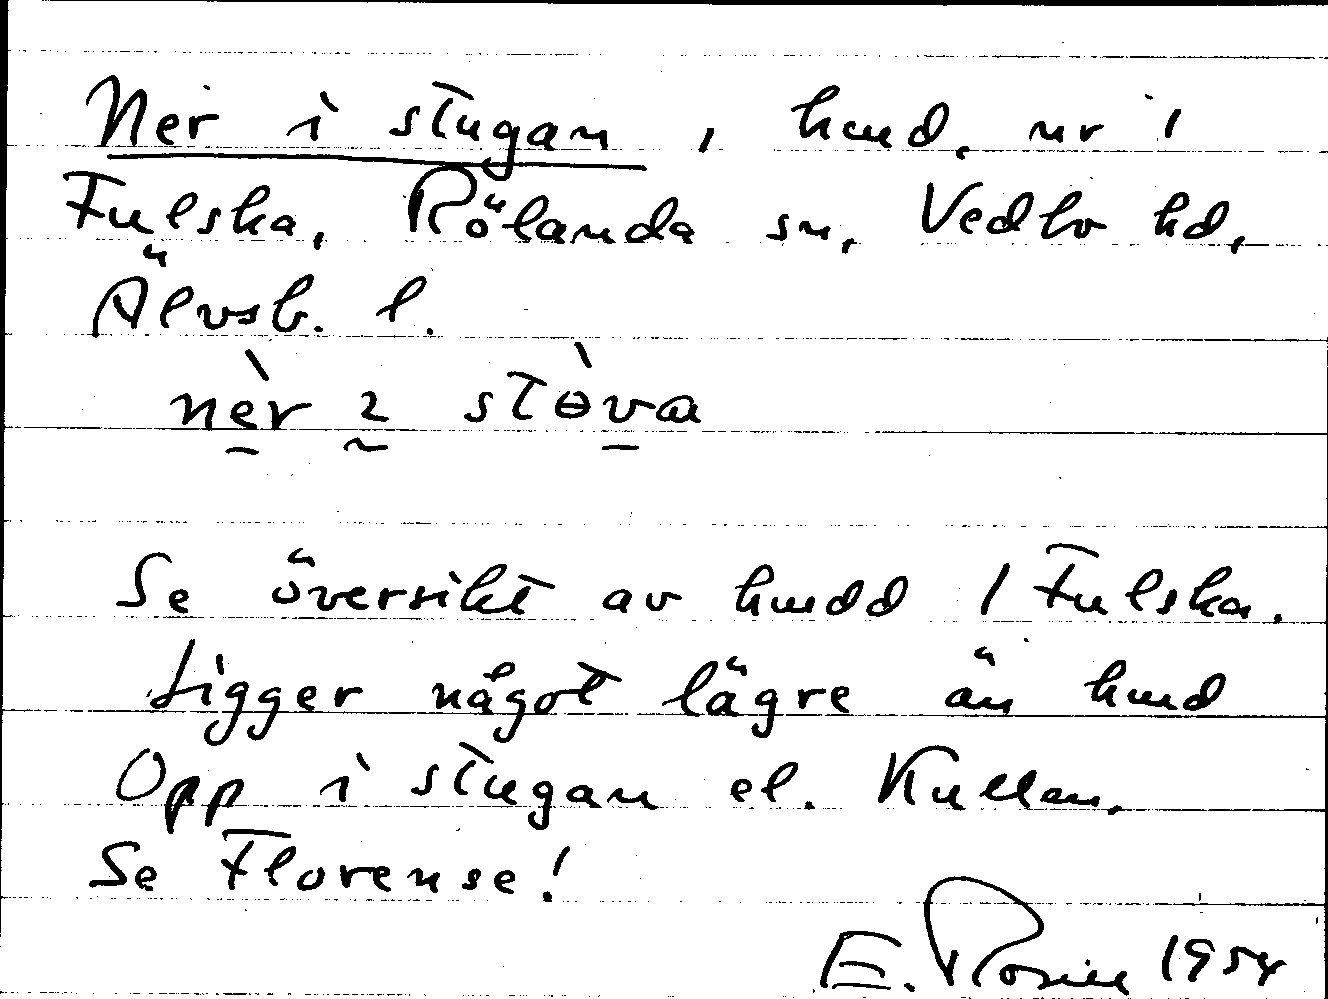 Ner i stugan, hmd. nr 1
Fulska, Rölanda sn, Vedbo hd,
Älvsb. l.
nèr 2 stɵ̀va
Se översikt av hmdd 1 Fulska.
Ligger något lägre än hmd
Opp i stugan el. Kullen.
Se Florense!
E. Rosin 1954